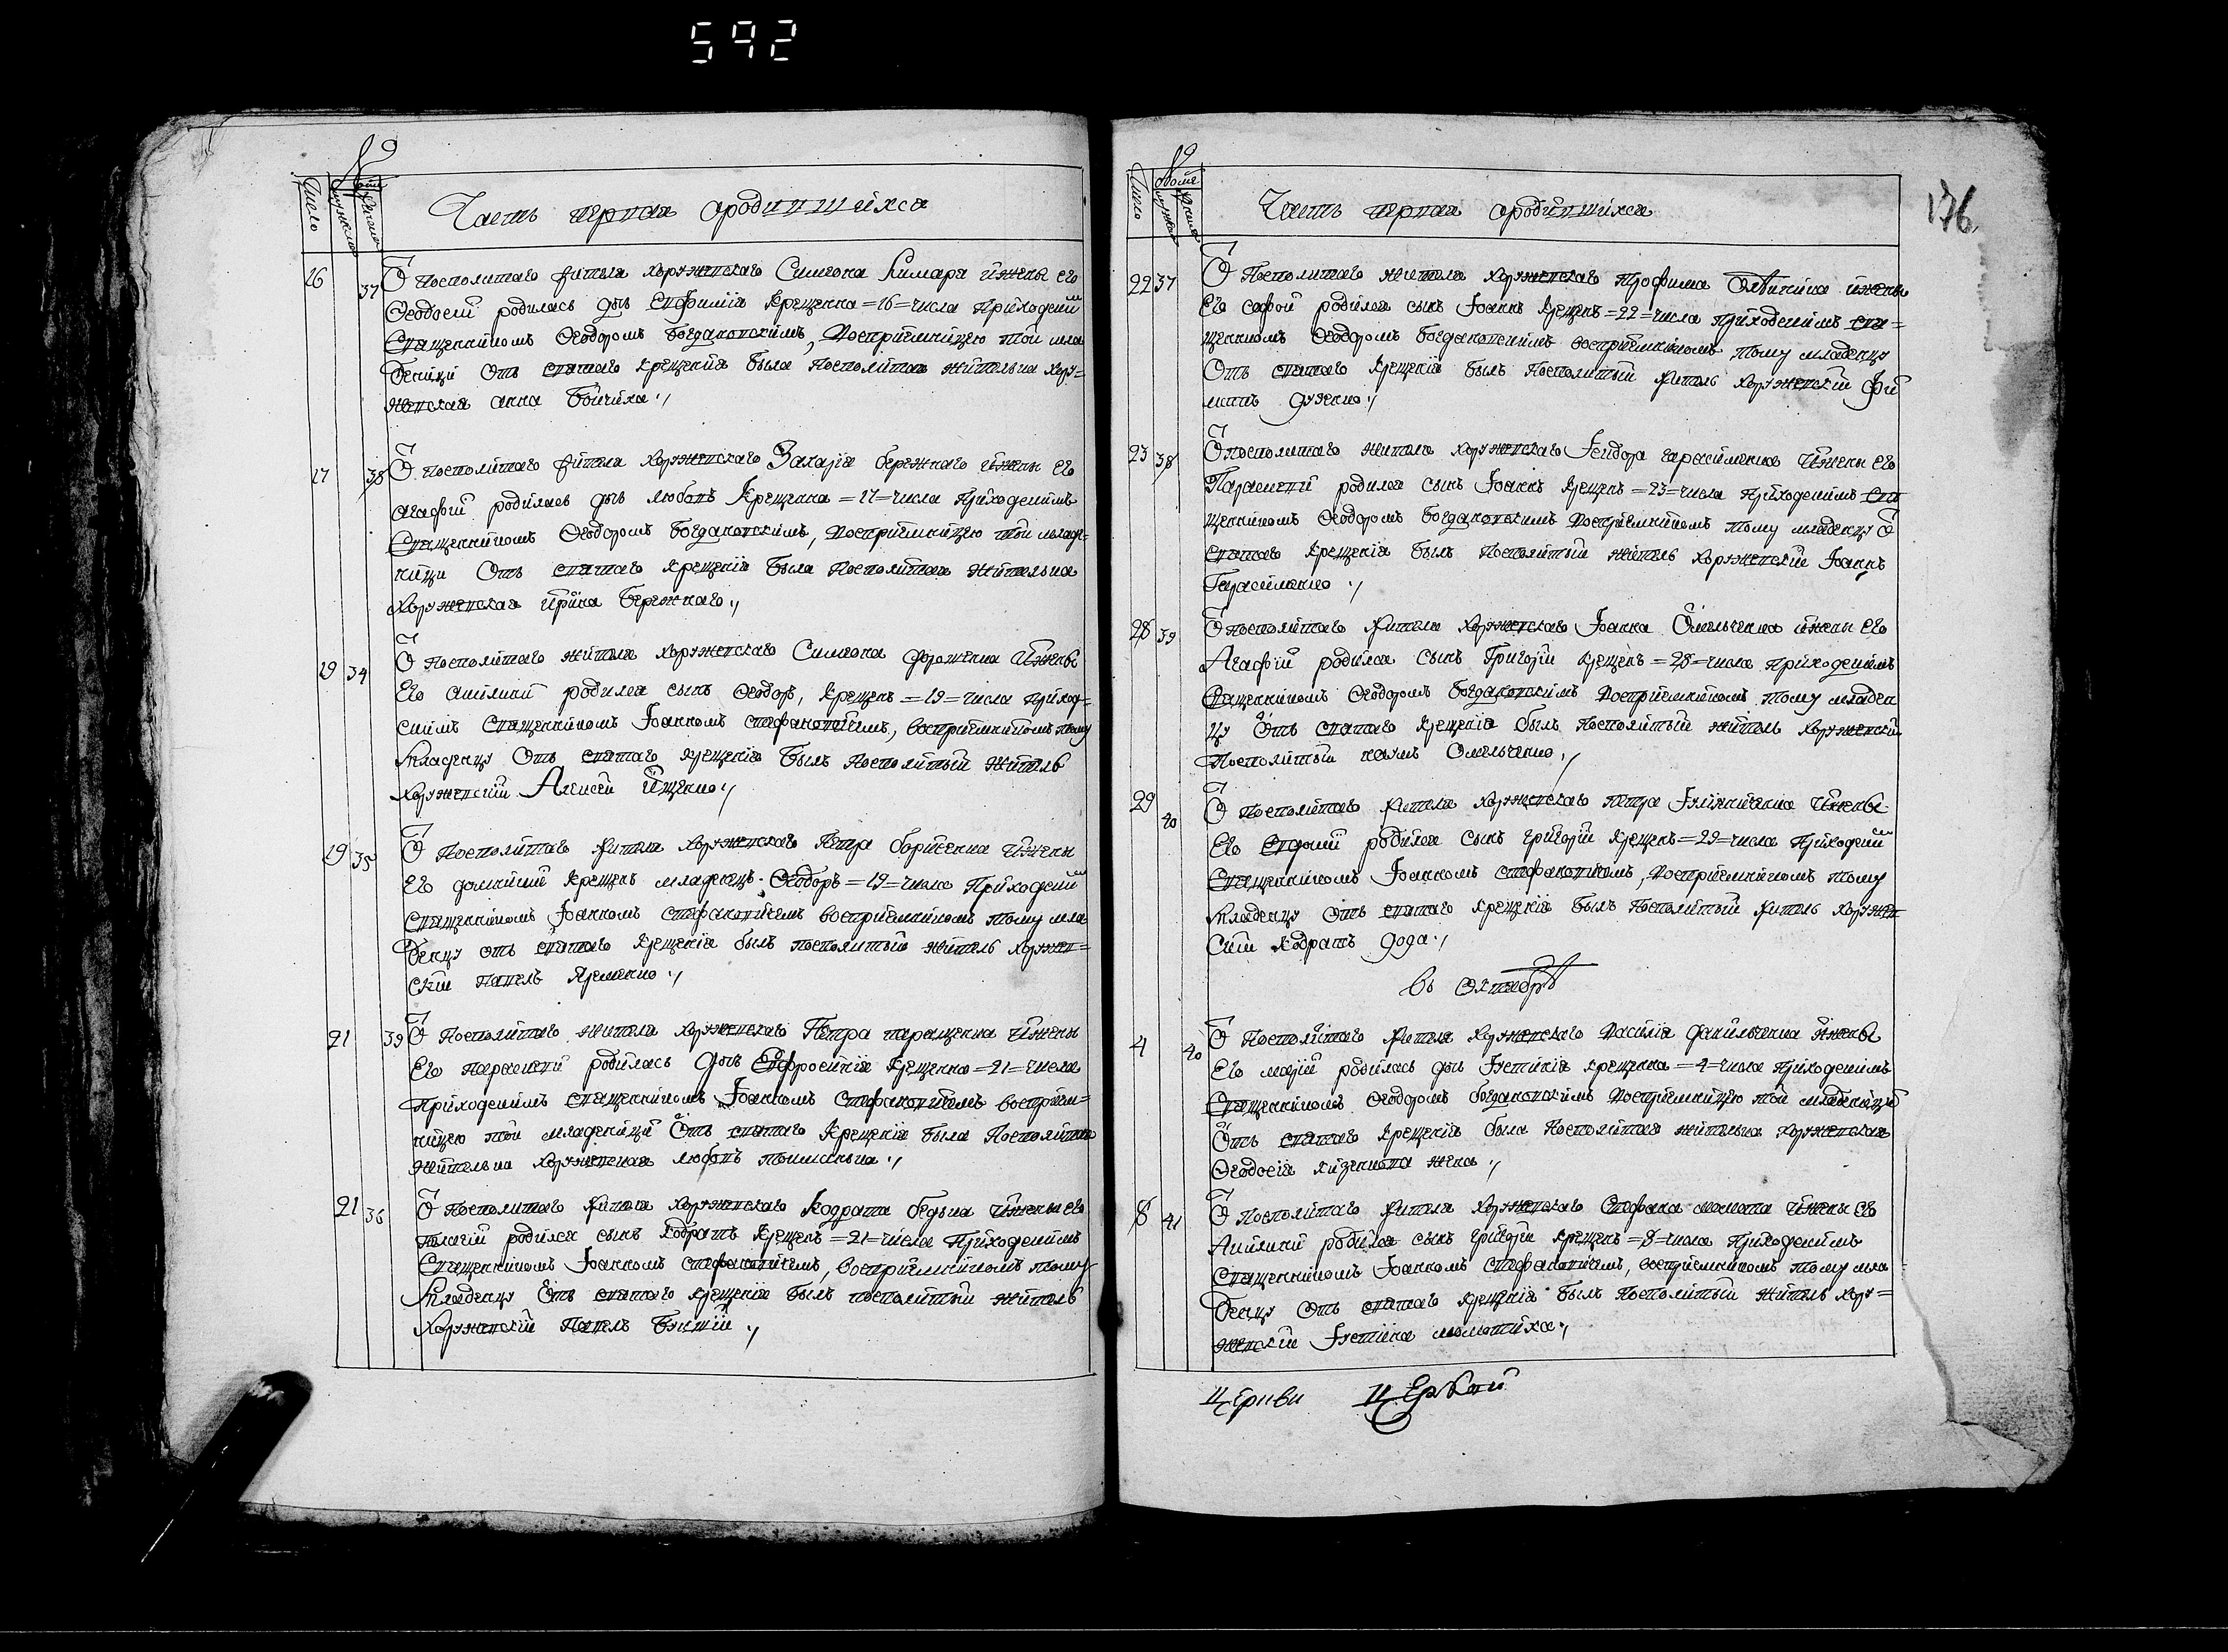 592
№
Число
мужеска
женска
Часть первая ородившихся
16 37 Ѿ Посполитаго жителя хоружевскаго Симеона Кимара и жены его
Ѳеодосіи родилась дщь Евфимія крещенна =16= числа Приходским
Священником Ѳеодором Богдановским, Восприемницею той мла
деници Отъ святаго крещенія была посполитая жителька хору=
жевская анна Бойчиха ./
17 38 Ѿ посполитаго жителя хоружевскаго Захарія бережнаго и жены его
агафіи родилась дщь любовь крещенна =17= числа приходскимъ
Священником Ѳеодоромъ Богдановскимъ, Восприемницею той младе=
ници Отъ святаго крещенія была посполитая жителька
хоружевская ирина Бережнаго ./
19 34 Ѿ посполитаго жителя хоружевскаго Симеона дороженка и жены
Его акилини родился сынъ Ѳеодоръ, крещенъ =19= числа приход=
скимъ священником Іоанномъ стефановичемъ, восприемником тому
младенцу Отъ святаго крещенія былъ посполитый житель
хоружевский Алексей Ищенко ./
19 35 Ѿ Посполитаго жителя хоружевскаго Петра борисенка и жены
Его домникии крещенъ младенецъ Ѳеодоръ =19= числа Приходским
священникомъ Іоанномъ стефановичемъ восприемником тому мла
денцу отъ святаго крещенія былъ посполитый житель хоружев=
ский павелъ Яременко ./
21 39 Ѿ Посполитаго жителя хоружевскаго Петра паращенка и жены
Его параскеви родилась дщь Евфросинія крещенна =21= числа
Приходскимъ священникомъ Іоанномъ Стефановичемъ восприем=
ницею той младеници Отъ святаго крещенія была Посполитая
жителька хоружевская любовь
21 36 Ѿ Посполитаго жителя хоружевскаго Кодрата бедыка и жены его
пелагіи родился сынъ кодратъ крещенъ =21= числа Приходскимъ
Священником Іоанномъ стефановичемъ, восприемникомъ тому
младенцу Отъ святаго крещенія былъ посполитый житель
Хоружевский Павелъ
176.
№
Число
обоего
мужеска
женска
Часть первая ородившихся
22 37 Ѿ Посполитаго жителя хоружевскаго Трофима и жены
Его софіи родился сынъ Іоаннъ крещенъ =22= числа приходскимъ свя=
щенником Ѳеодором Богдановским восприемником тому младенцу
Отъ святаго крещенія былъ посполитый житель хоружевский Фи
липъ дузенко ./
23 38 Ѿ посполитаго жителя хоружевскаго Ісидора гарасименка и жены его
Параскеви родился сынъ Іоаннъ крещенъ =23= числа приходскимъ свя
щенником Ѳеодором Богдановскимъ Восприемником тому младенцу Ѿ
святаго крещенія былъ посполитый житель хоружевский Іоаннъ
Гарасименко ./
28 39 Ѿ посполитаго жителя хоружевскаго Іоанна Омельченка и жены Его
Агафіи родился сынъ Григорій крещенъ =28= числа приходскимъ
Священником Ѳеодоромъ Богдановскимъ Восприемником тому младен
цу Отъ святаго крещенія былъ посполитый житель хоружевский
посполитый наумъ Омельченко ./
29 40 Ѿ посполитаго жителя хоружевскаго петра и жены
Его Евдокии родился сынъ григорій крещенъ =29= числа Приходским
Священником Іоанном стефановичемъ, Восприемником тому
младенцу Отъ святаго крещенія былъ посполитый житель хоружев
ский кодратъ дода ./
Въ Октябрѣ
4 40 Ѿ Посполитаго жителя хоружевскаго Василія данильченка и жены
Его маріи родилась дщь Іустинія крещенна =4= числа приходскимъ
Священником Ѳеодором Богдановскимъ Восприемницею той младеници
Отъ святаго крещенія была посполитая жителька хоружевская
Ѳеодосія жена ./
8 41 Ѿ посполитаго жителя хоружевскаго Стефана момота и жены его
Акилини родился сынъ григорій крещенъ =8= числа приходскимъ
священником Іоанномъ стефановичемъ, восприемником тому мла
денцу Отъ святаго крещенія былъ посполитый житель хору=
жевский Іустина момотиха ./
Церкви Церкви